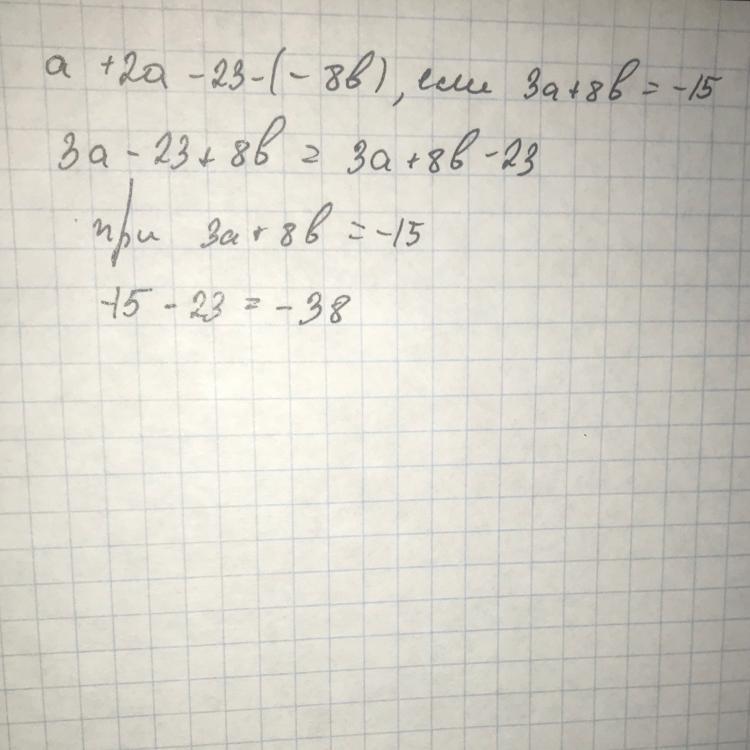 a + 2a - 23 - (- 8b), если 3a + 8b = -15
3a - 23 + 8b = 3a + 8b - 23
при 3a + 8b = -15
-15 - 23 = - 38